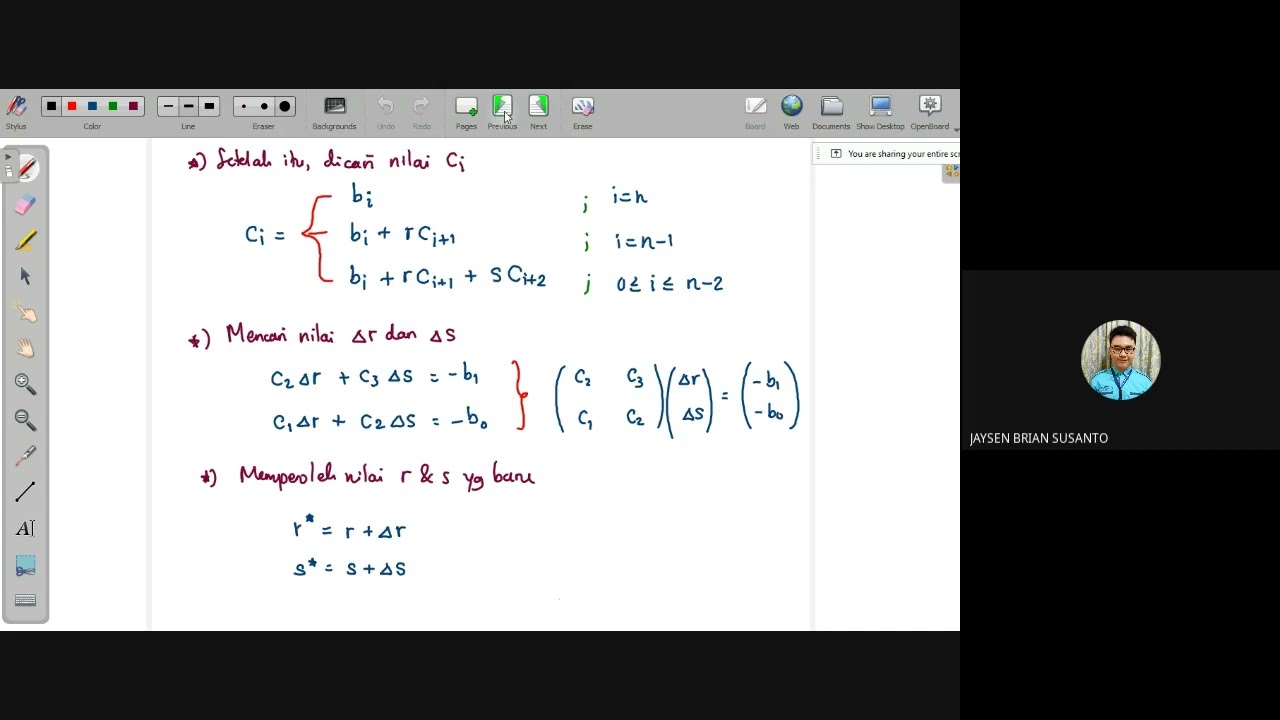 Stylus Color Line Eraser Backgrounds Undo Redo Pages Previous Next Erase Board Web Documents Show Desktop OpenBoard
You are sharing your entire scr
*) Setelah itu, dicari nilai Ci
bi ; i=n
Ci = bi + rCi+1 ; i=n-1
bi + rCi+1 + sCi+2 ; 0≤i≤n-2
*) Mencari nilai Δr dan Δs
C2Δr + C3Δs = -b1
C1Δr + C2Δs = -b0
(C2 C3
C1 C2) (Δr
Δs) = (-b1
-b0)
*) Memperoleh nilai r & s yg baru
r* = r + Δr
s* = s + Δs
AI
JAYSEN BRIAN SUSANTO